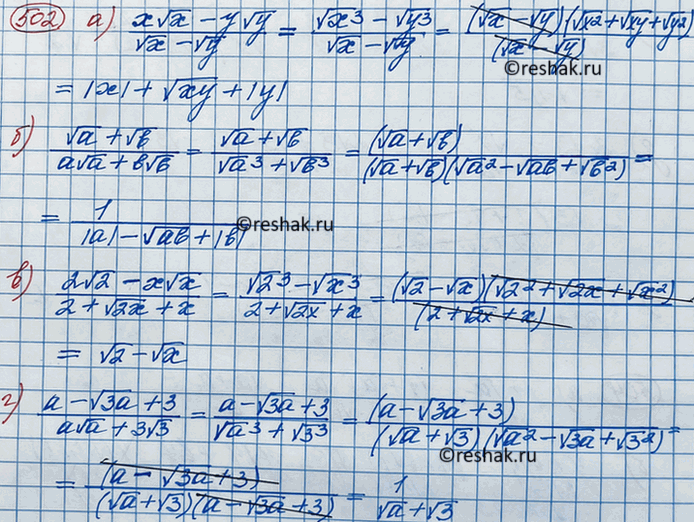 502 а) (x√x − y√y)/(√x − √y) = (√x³ − √y³)/(√x − √y) = (√x − √y)(√x² + √xy + √y²)/(√x − √y)
©reshak.ru
= |x| + √xy + |y|
б) (√a + √b)/(a√a + b√b) = (√a + √b)/(√a³ + √b³) = (√a + √b)/((√a + √b)(√a² − √ab + √b²)) =
= 1/(|a| − √ab + |b|)
©reshak.ru
в) (2√2 − x√x)/(2 + √2x + x) = (√2³ − √x³)/(2 + √2x + x) = (√2 − √x)(√2² + √2x + √x²)/(2 + √2x + x)
= √2 − √x
г) (a − √3a + 3)/(a√a + 3√3) = (a − √3a + 3)/(√a³ + √3³) = (a − √3a + 3)/((√a + √3)(√a² − √3a + √3²)) =
©reshak.ru
= (a − √3a + 3)/((√a + √3)(a − √3a + 3)) = 1/(√a + √3)